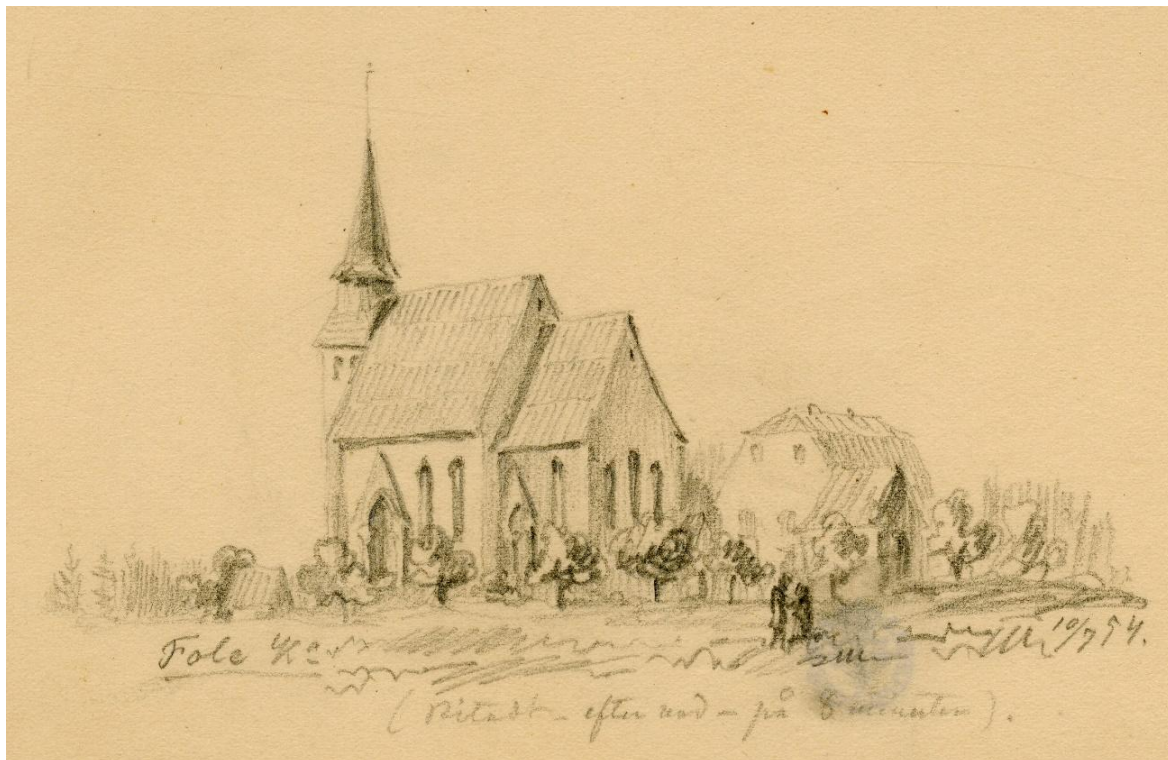 Fole K:a 10/7 54.
(Ritadt - efter vad - på 8 minuter).